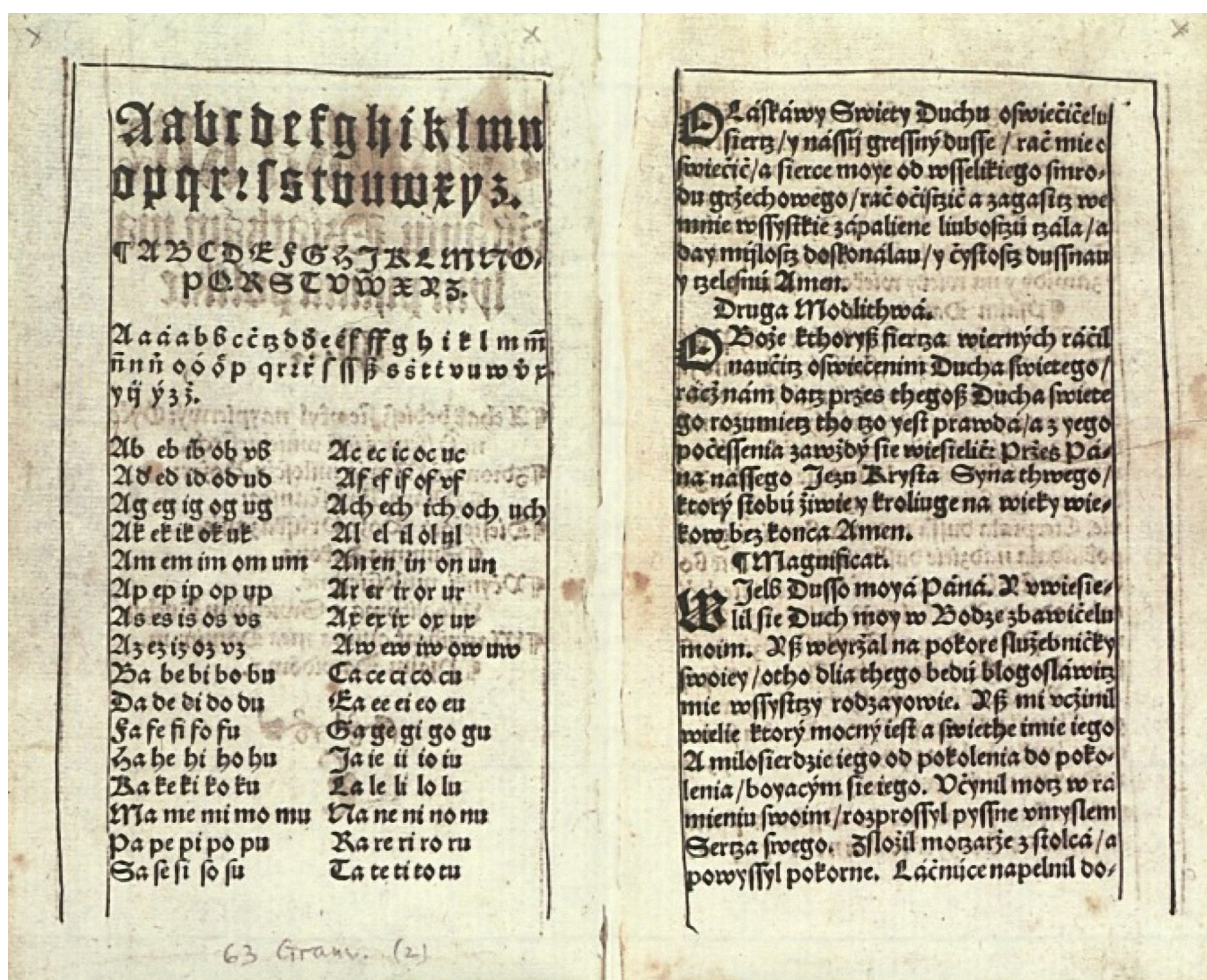 Aabcdefghiklmn
opqrꝛſstvuwxyz.
¶ A B C D E F G H J K L M N O⸗
P Q R S T V W X Y Z.
y ÿ ý z ż.
Ab eb ib ob vb
Ad ed id od ud
Ag eg ig og ug
Ak ek ik ok uk
Am em im om um
Ap ep ip op up
As es is os vs
Az ez iz oz vz
Ba be bi bo bu
Da de di do du
Fa fe fi fo fu
Ha he hi ho hu
Ka ke ki ko ku
Ma me mi mo mu
Pa pe pi po pu
Sa se si so su
Ac ec ic oc uc
Af ef if of vf
Ach ech ich och uch
Al el il ol ul
An en in on un
Ar er ir or ur
Ax ex ix ox ux
Aw ew iw ow uw
Ca ce ci co cu
Ea ee ei eo eu
Ga ge gi go gu
Ja ie ii io iu
La le li lo lu
Na ne ni no nu
Ra re ri ro ru
Ta te ti to tu
63 Gram. (2)
O Láſkáwy Swiety Duchu oſwiečičelu
ſiertz/y náſſij greſſný duſſe/rač mie o
ſwiečič/a ſierce moye od wſſelikiego ſmro⸗
du gržechowego/rač očiſtič a zagaſitz we
mnie wſſyſtkie zápaliene liuboſtzü tzála/a
day mijloſtz doſkonálau/y čyſtoſtz duſſnau
y tzeleſnü Amen.
Druga Modlithwá.
O Bože kthoryß ſiertza wierných ráčil
naučitz oſwiečenim Ducha ſwietego/
račž nám datz przes thegoß Ducha ſwiete
go rozumietz tho tzo yeſt prawdá/a z yego
počeſſenia zawždý ſie wieſielič Przes Pá⸗
na naſſego Jezu Kryſta Syna thwego/
ktorý ſtobü žiwie y kroliuge na wieky wie⸗
kow bez konca Amen.
¶ Magnificat.
Wielb Duſſo moyá Páná. Y vwieſie⸗
lil ſie Duch moy w Bodze zbawičelu
moim. Yß weyržal na pokore ſlužebničky
ſwoiey/otho dlia thego bedü blogoſláwitz
mie wſſyſtzy rodzayowie. Yß mi vcžinil
wielie ktorý mocný ieſt a ſwiethe imie iego
A miloſierdzie iego od pokolenia do poko⸗
lenia/boyacým ſie iego. Včynil motz w ra
mieniu ſwoim/rozproſſyl pyſſne vmyſlem
Sertza ſwego. Zſložil motzarže z ſtolcá/a
powyſſyl pokorne. Láčnüce napelnil do⸗